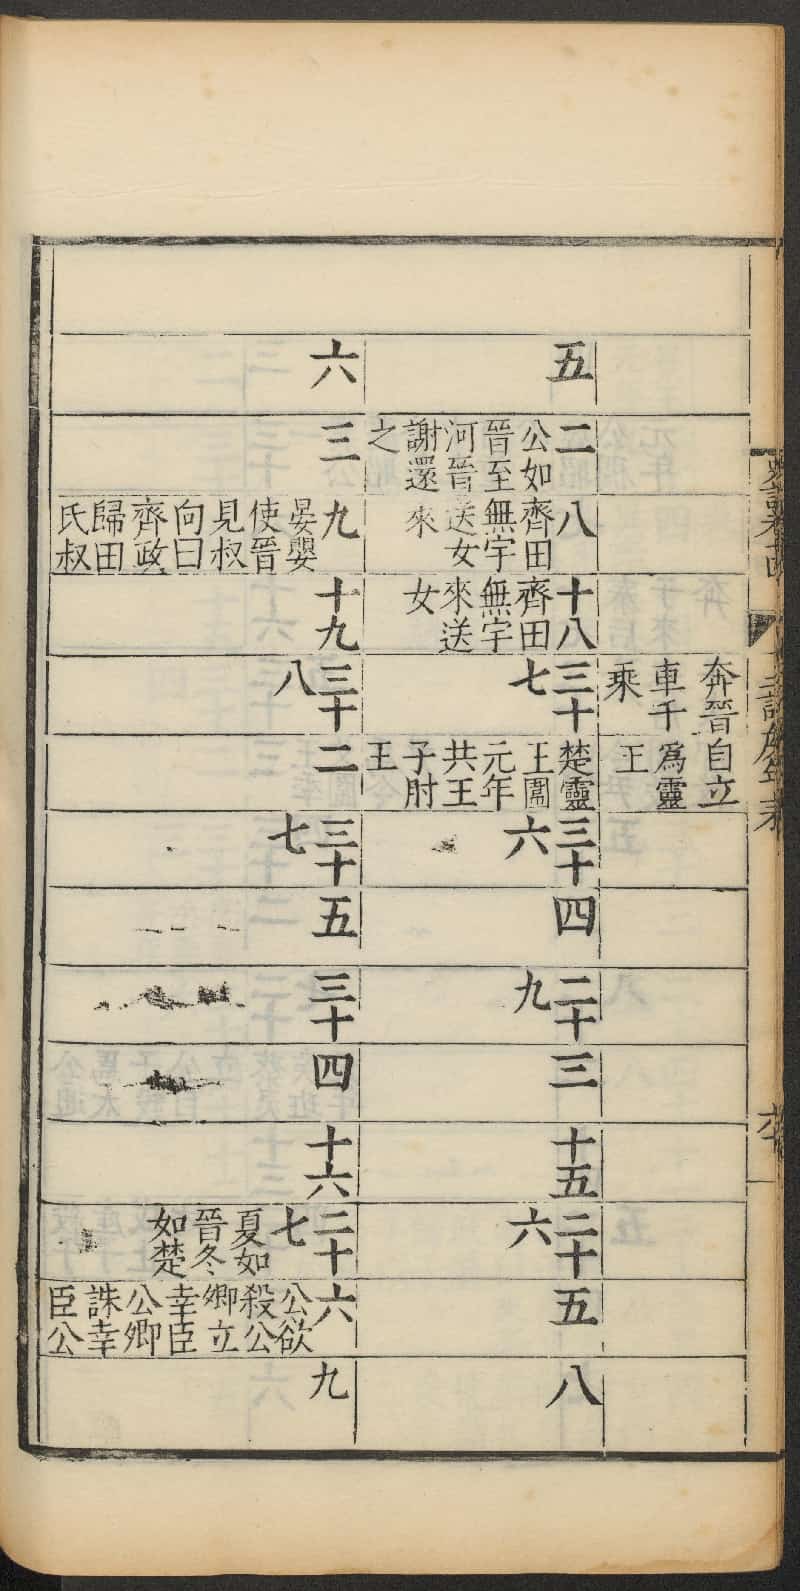 奔晉
車千
乘
自立
爲靈
王
五
二
公如
晉至
河晉
謝還
之
八
齊田
無宇
送女
來
十八
齊田
無宇
來送
女
三十
七
楚靈
王圍
元年
共王
子肘
王
三十
六
四
二十
九
三
十五
二十
六
五
八
六
三
九
晏嬰
使晉
見叔
向曰
齊政
歸田
氏叔
十九
三十
八
二
三十
七
五
三十
四
十六
二十
七
夏如
晉冬
如楚
六
公欲
殺公
卿立
幸臣
公卿
誅幸
臣公
九